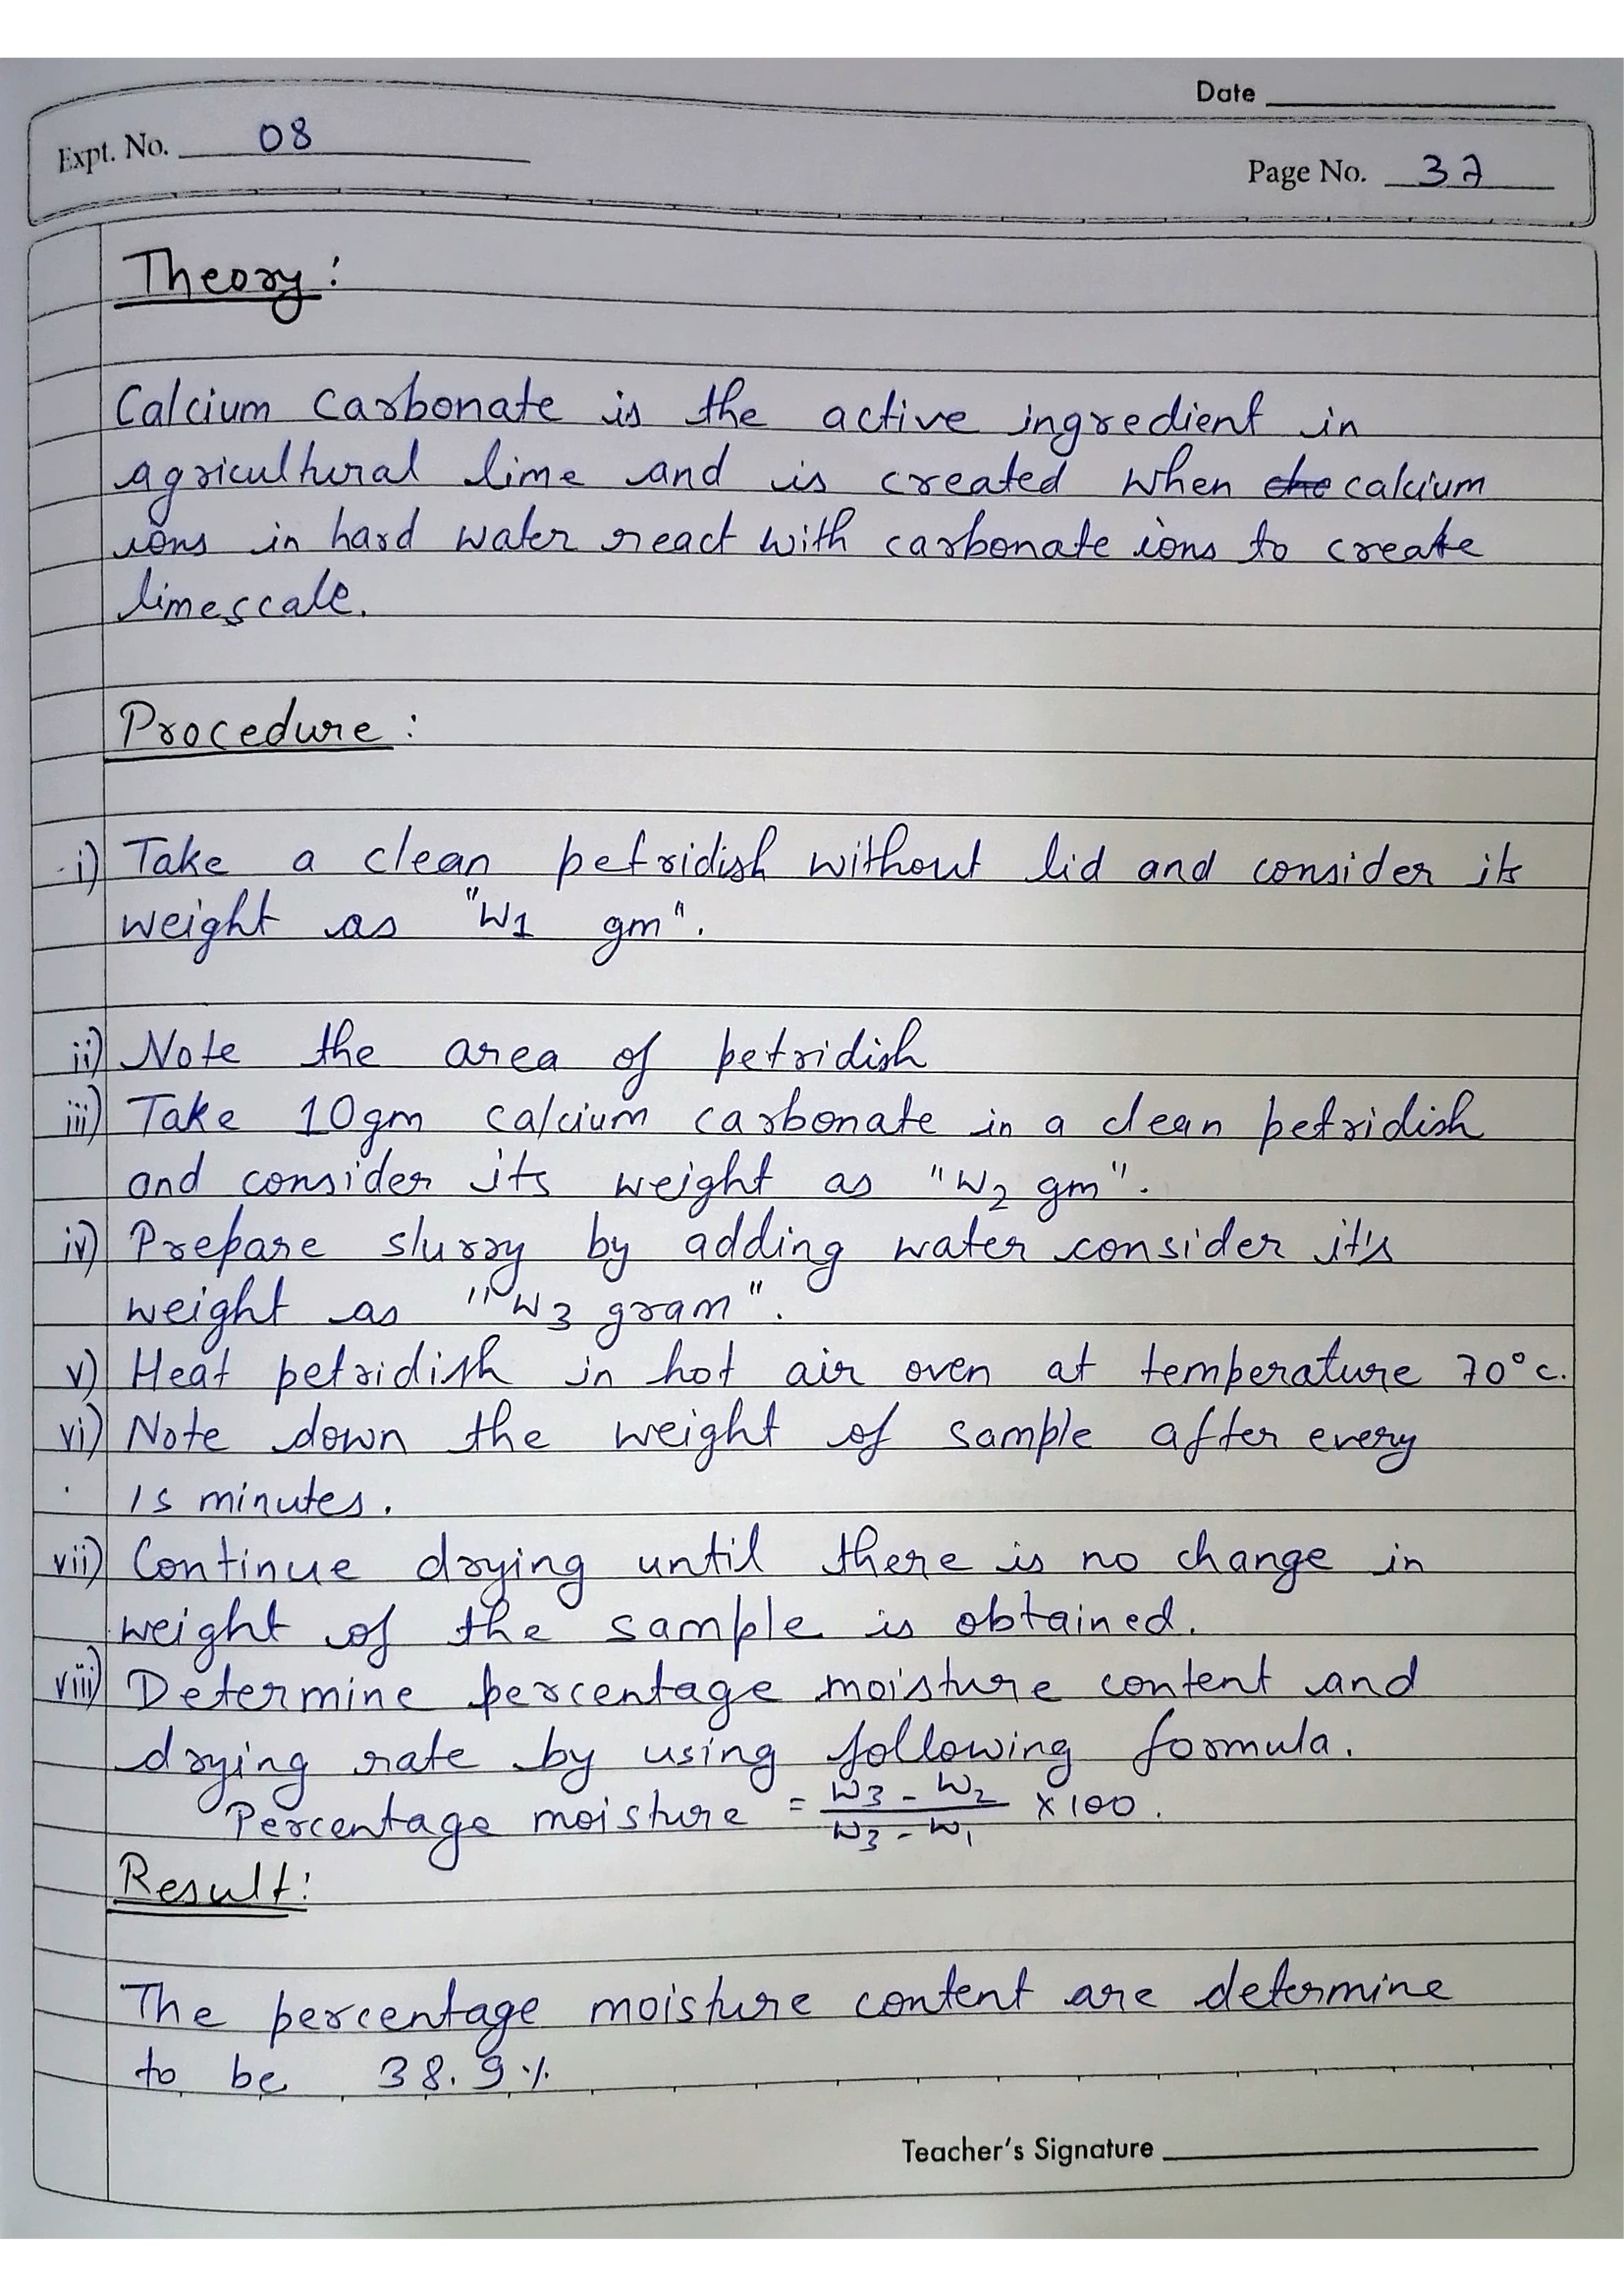 Date
Expt. No. 08
Page No. 37
Theory:
Calcium carbonate is the active ingredient in
agricultural lime and is created when che calcium
ions in hard water react with carbonate ions to create
limescale.
Procedure:
i) Take a clean petridish without lid and consider its
weight as "W1 gm".
ii) Note the area of petridish
iii) Take 10gm calcium carbonate in a clean petridish
and consider its weight as "W2 gm".
iv) Prepare slurry by adding water consider it's
weight as "W3 gram".
v) Heat petridish in hot air oven at temperature 70°c.
vi) Note down the weight of sample after every
15 minutes.
vii) Continue drying until there is no change in
weight of the sample is obtained.
viii) Determine percentage moisture content and
drying rate by using following formula.
Percentage moisture = W3 - W2 / W3 - W1 × 100.
Result:
The percentage moisture content are determine
to be 38.9%
Teacher's Signature